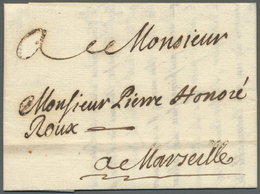 A Monsieur
Monsieur Pierre Honoré
Roux
a Marseille